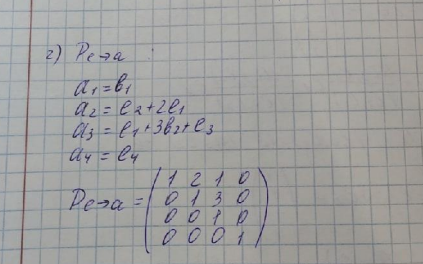 г) Pe→a :
a₁ = e₁
a₂ = e₂ + 2e₁
a₃ = e₁ + 3e₂ + e₃
a₄ = e₄
Pe→a = ( 1 2 1 0
0 1 3 0
0 0 1 0
0 0 0 1 )